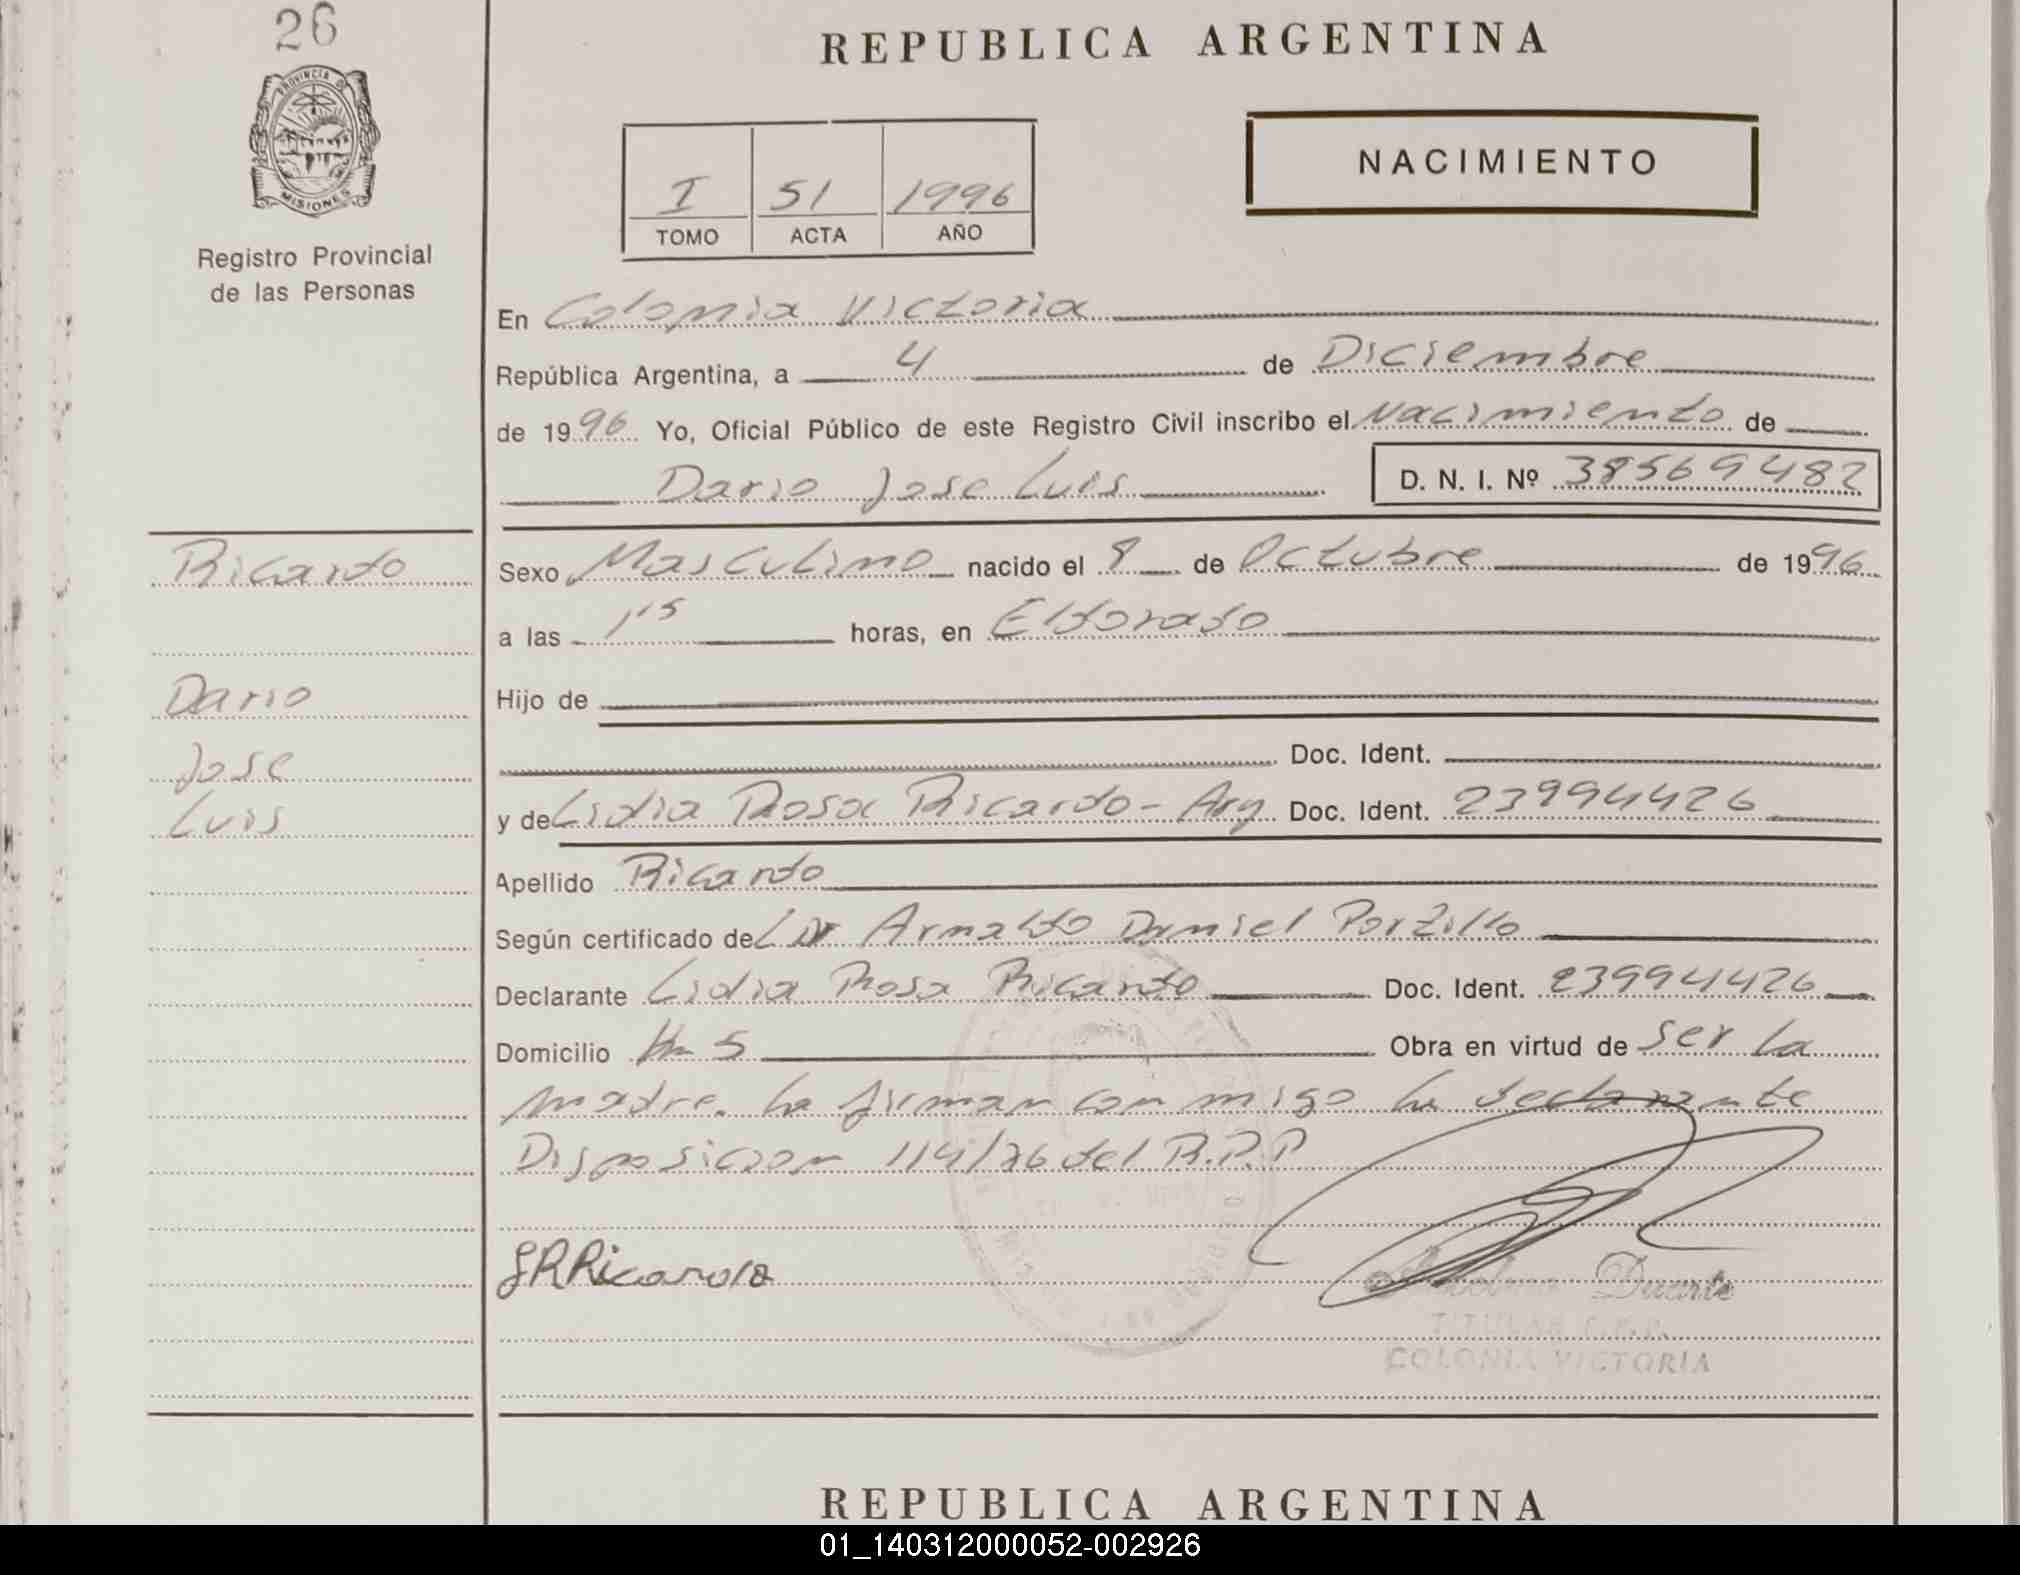 26
PROVINCIA DE
MISIONES
Registro Provincial
de las Personas
REPUBLICA ARGENTINA
I 51 1996
TOMO ACTA AÑO
NACIMIENTO
En Colonia Victoria
República Argentina, a 4 de Diciembre
de 1996 Yo, Oficial Público de este Registro Civil inscribo el Nacimiento de
Dario Jose Luis D. N. I. Nº 38569482
Ricardo
Sexo Masculino nacido el 8 de Octubre de 1996
a las 1'15 horas, en Eldorado
Dario
Hijo de
Jose
Doc. Ident.
Luis
y de Lidia Rosa Ricardo - Arg Doc. Ident. 23994426
Apellido Ricardo
Según certificado de Dr Arnaldo Daniel Portillo
Declarante Lidia Rosa Ricardo Doc. Ident. 23994426
Domicilio Km 5 Obra en virtud de ser la
madre. La firman con migo la declarante
Disposicion 114/76 del R.P.P
LRRicardo
Duarte
TITULAR
COLONIA VICTORIA
REPUBLICA ARGENTINA
01_140312000052-002926